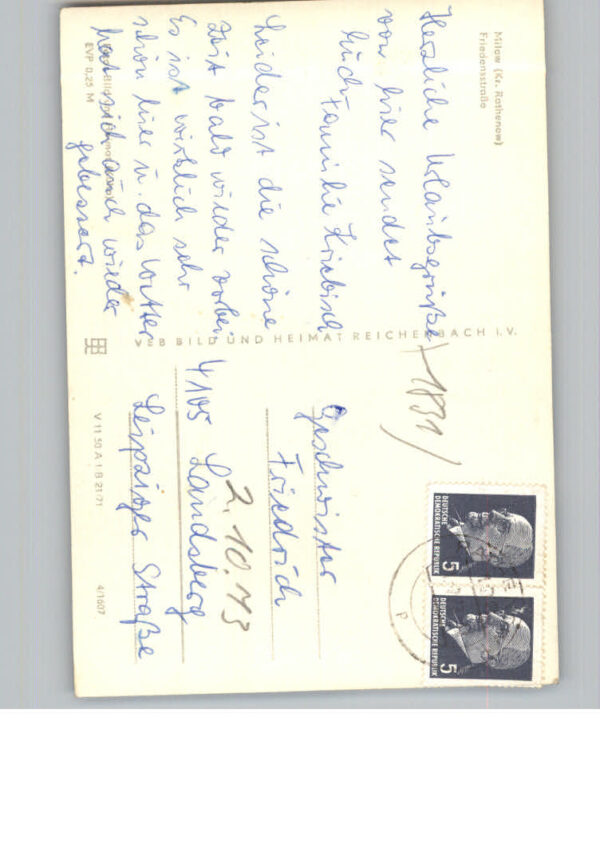 Milow (Kr. Rathenow)
Friedensstraße
Herzliche Urlaubsgrüße
von hier sendet
Euch Familie
Leider ist die schöne
Zeit bald wieder vorbei.
Es ist wirklich sehr
schön hier u. das Wetter
hat sich auch wieder
gebessert.
EVP 0,25 M
VEB BILD UND HEIMAT REICHENBACH I. V.
V 11 50 A 1 B 21/71
4/1607
1831
Geschwister
Friedrich
4105 Landsberg
Leipziger Straße
2.10.73
DEUTSCHE
DEMOKRATISCHE REPUBLIK
5
DEUTSCHE
DEMOKRATISCHE REPUBLIK
5